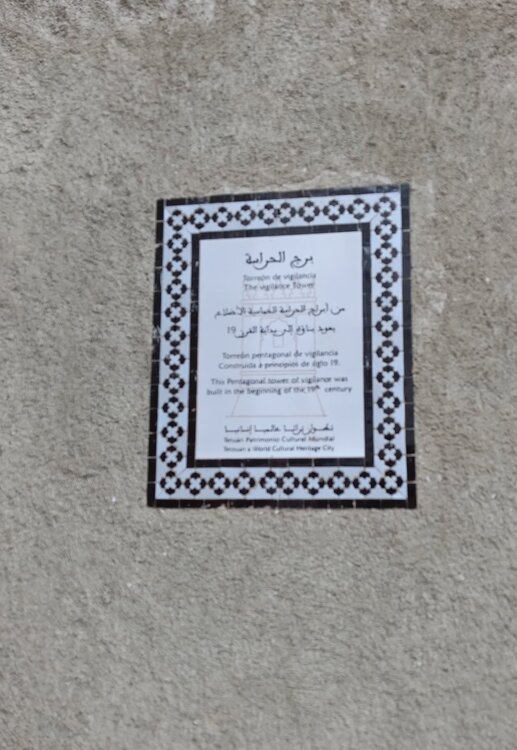 برج الحراسة
Torreón de vigilancia
The vigilance Tower
من أبراج الحراسة الخماسية الأضلاع
يعود بناؤه إلى بداية القرن 19
Torreón pentagonal de vigilancia
Construida à principios de siglo 19.
This Pentagonal tower of vigilance was
built in the beginning of the 19th century
تطوان تراثا عالميا إنسانيا
Tetuán Patrimonio Cultural Mundial
Tetouan a World Cultural Heritage City